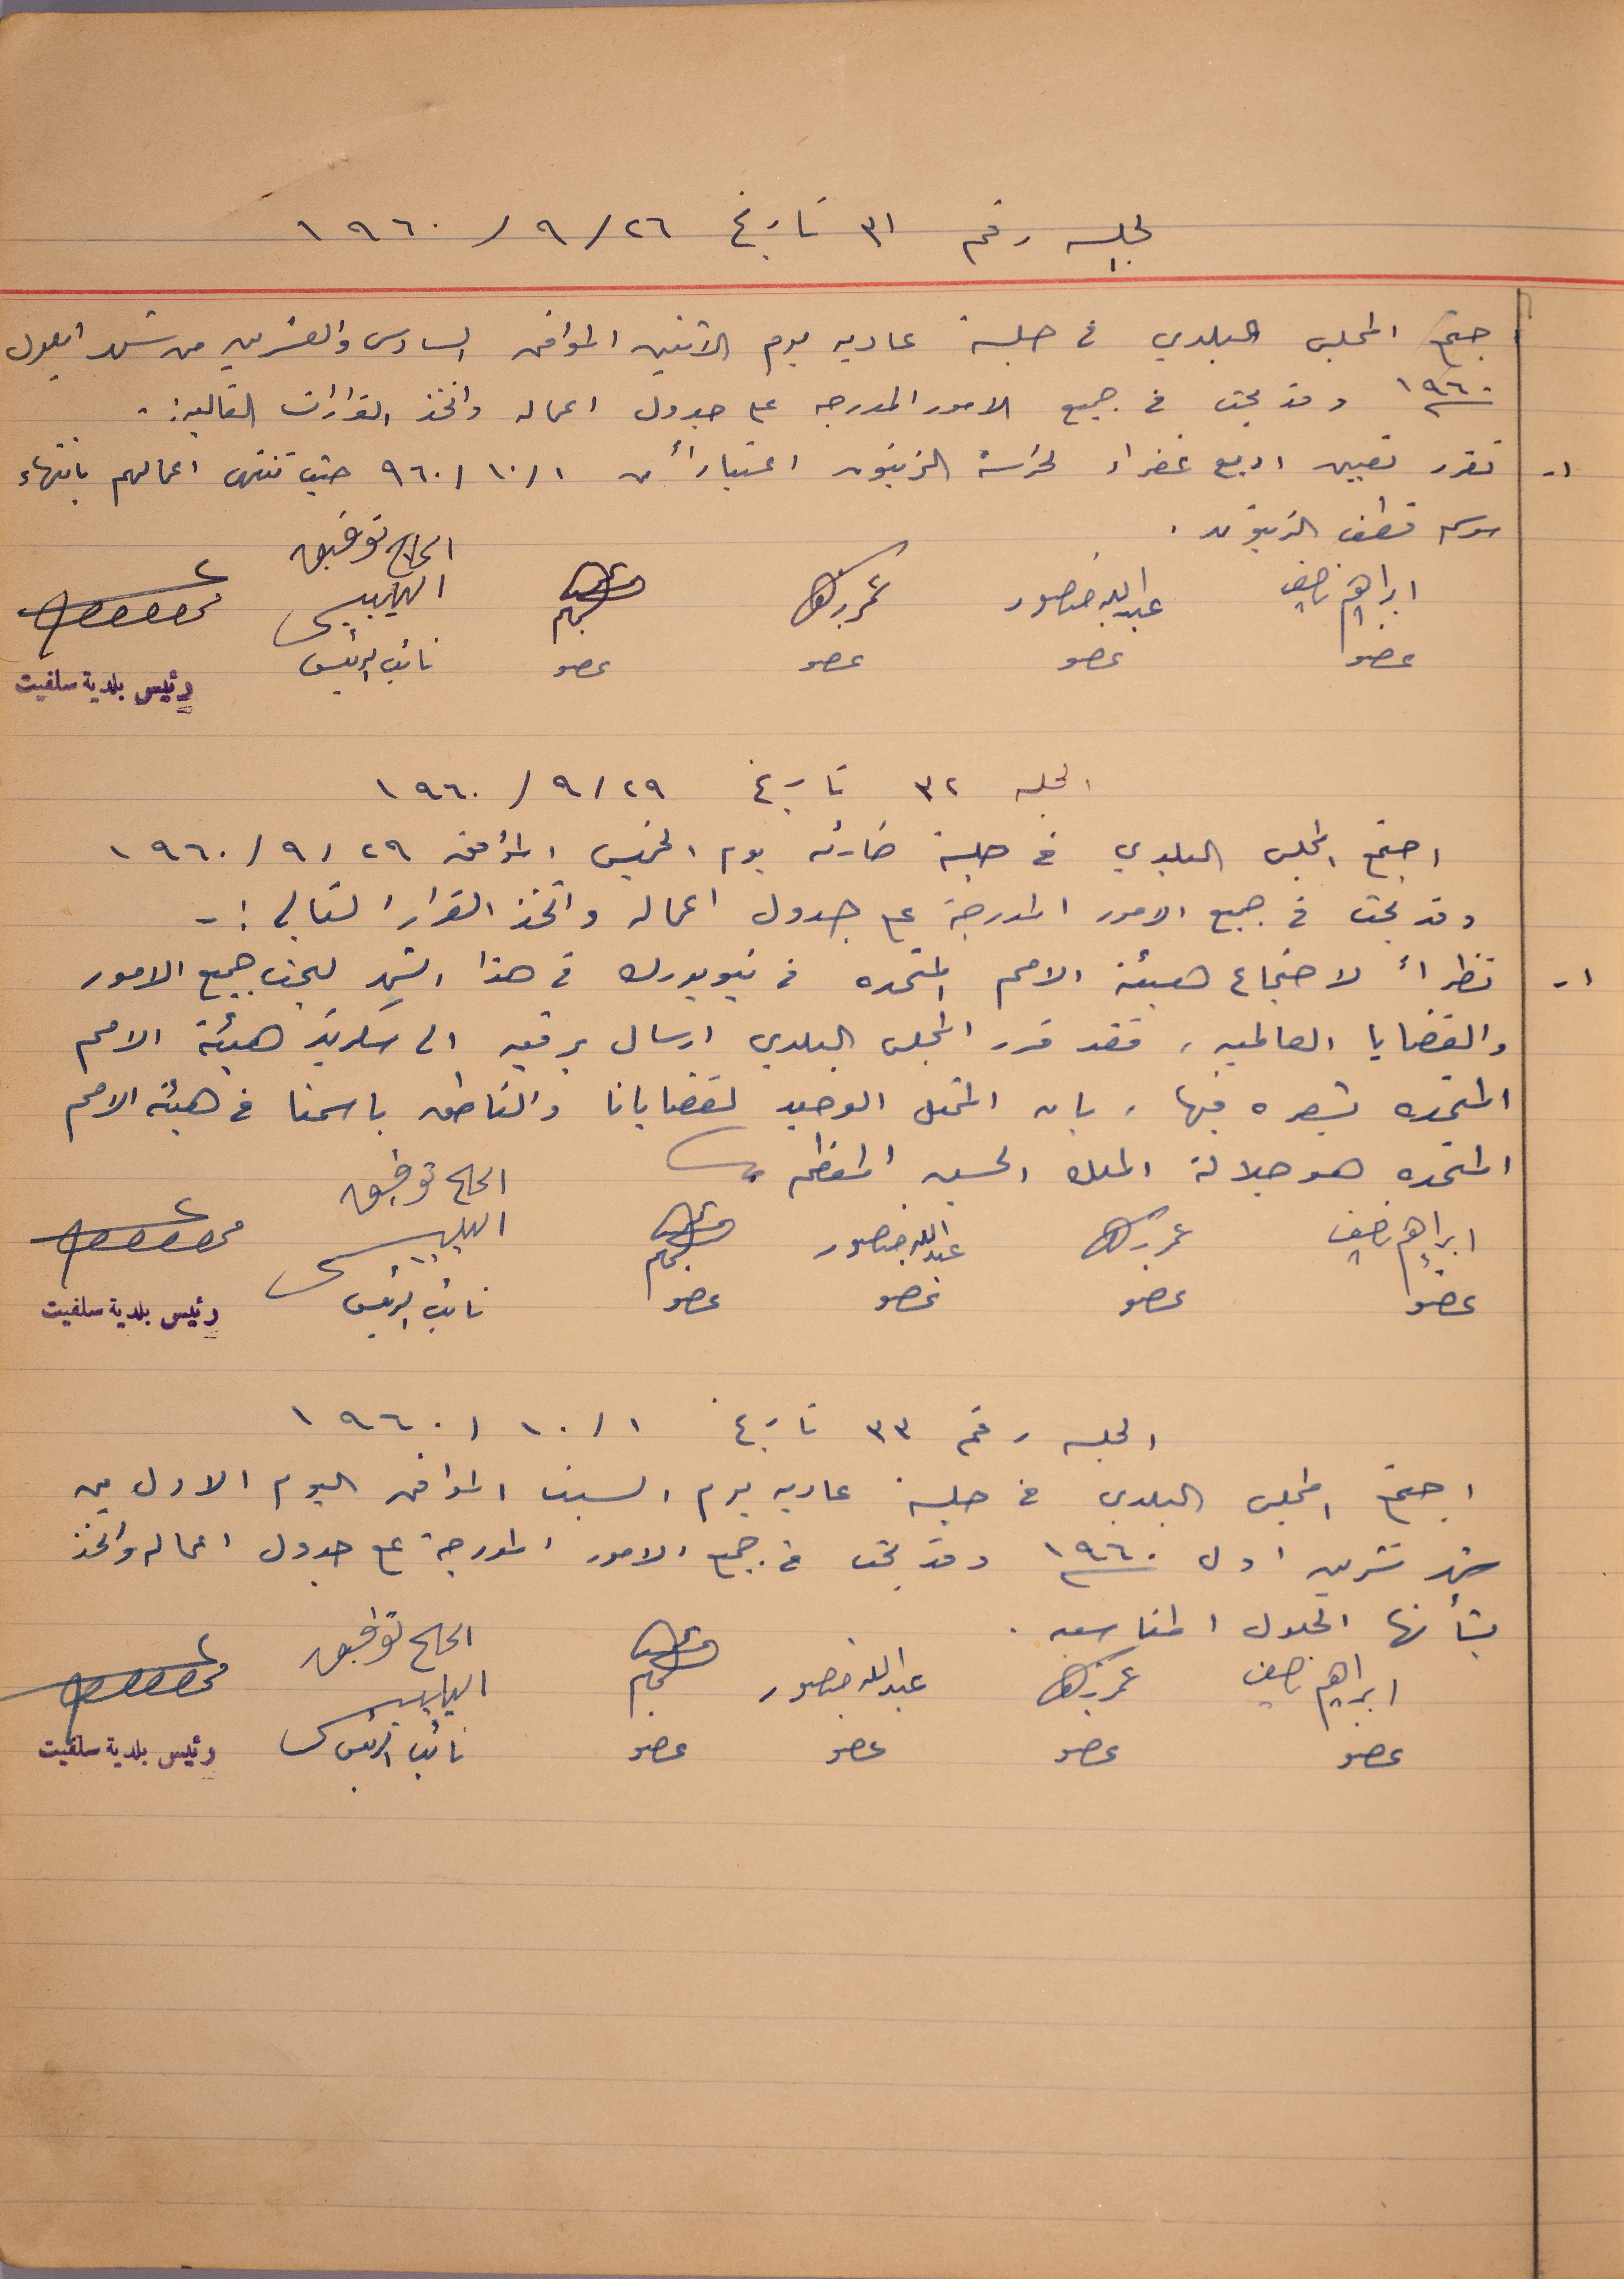 لجلسه رقم ٣١ تاريخ ٢٦/ ٩/ ١٩٦٠
اجتمع المجلس البلدي في جلسة عاديه يوم الاثنين الموافق السادس والعشرين من شهر ايلول
١٩٦٠ وقد بحث في جميع الامور المدرجه على جدول اعماله واتخذ القرارات التاليه :-
١- تقرر تعيين اربع غفراء لحراسة الزيتون اعتباراً من ١/ ١٠/ ٩٦٠ حيث تنتهي اعمالهم بانتهاء
موسم قطف الزيتون .
ابراهيم نصيف عبدالله منصور عمر الحاج توفيق
عضو عضو عضو عضو نائب الرئيس
رئيس بلدية سلفيت
الجلسه ٣٢ تاريخ ٢٩/ ٩/ ١٩٦٠
اجتمع المجلس البلدي في جلسة طارئه يوم الخميس الموافق ٢٩/ ٩/ ١٩٦٠
وقد بحث في جميع الامور المدرجة على جدول اعماله واتخذ القرار التالي :-
١- نظراً لاجتماع هيئة الامم المتحده في نيويورك في هذا الشهر لبحث جميع الامور
والقضايا العالميه ، فقد قرر المجلس البلدي ارسال برقيه الى سكرتير هيئة الامم
المتحده تشعره فيها ، بان الممثل الوحيد لقضايانا والناطق باسمنا في هيئة الامم
المتحده هو جلالة الملك الحسين المعظم
ابراهيم نصيف عمر عبدالله منصور الحاج توفيق
عضو عضو عضو عضو نائب الرئيس
رئيس بلدية سلفيت
الجلسه رقم ٣٣ تاريخ ١/ ١٠/ ١٩٦٠
اجتمع المجلس البلدي في جلسة عاديه يوم السبت الموافق اليوم الاول من
شهر تشرين اول ١٩٦٠ وقد بحث في جميع الامور المدرجة على جدول اعماله واتخذ
بشأنها الحلول المناسبه .
ابراهيم نصيف عمر عبدالله منصور الحاج توفيق
عضو عضو عضو عضو نائب الرئيس
رئيس بلدية سلفيت